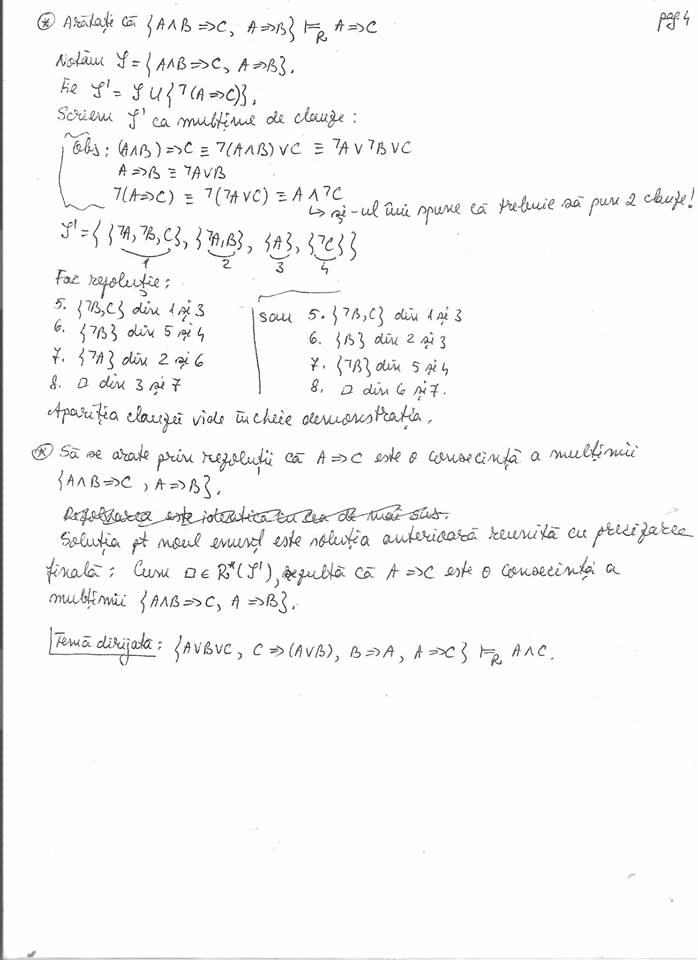 pag 4
⊛ Arătați că {A∧B ⇒ C, A ⇒ B} ⊨R A ⇒ C
Notăm S = {A∧B ⇒ C, A ⇒ B}.
Fie S' = S ∪ {⌝(A ⇒ C)}.
Scriem S' ca mulțime de clauze:
Obs: (A∧B) ⇒ C ≡ ⌝(A∧B) ∨ C ≡ ⌝A ∨ ⌝B ∨ C
A ⇒ B ≡ ⌝A∨B
⌝(A ⇒ C) ≡ ⌝(⌝A∨C) ≡ A ∧ ⌝C
↳ și-ul îmi spune că trebuie să pun 2 clauze!
S' = { {⌝A, ⌝B, C}, {⌝A, B}, {A}, {⌝C} }
1 2 3 4
Fac rezoluție:
5. {⌝B, C} din 1 și 3
6. {⌝B} din 5 și 4
7. {⌝A} din 2 și 6
8. □ din 3 și 7
sau 5. {⌝B, C} din 1 și 3
6. {B} din 2 și 3
7. {⌝B} din 5 și 4
8. □ din 6 și 7.
Apariția clauzei vide încheie demonstrația.
⊛ Să se arate prin rezoluții că A ⇒ C este o consecință a mulțimii
{A∧B ⇒ C, A ⇒ B}.
Rezolvarea este identică cu cea de mai sus.
Soluția pt noul enunț este soluția anterioară reunită cu precizarea
finală: Cum □ ∈ R*(S'), rezultă că A ⇒ C este o consecință a
mulțimii {A∧B ⇒ C, A ⇒ B}.
Temă dirijată: {A∨B∨C, C ⇒ (A∨B), B ⇒ A, A ⇒ C} ⊨R A∧C.